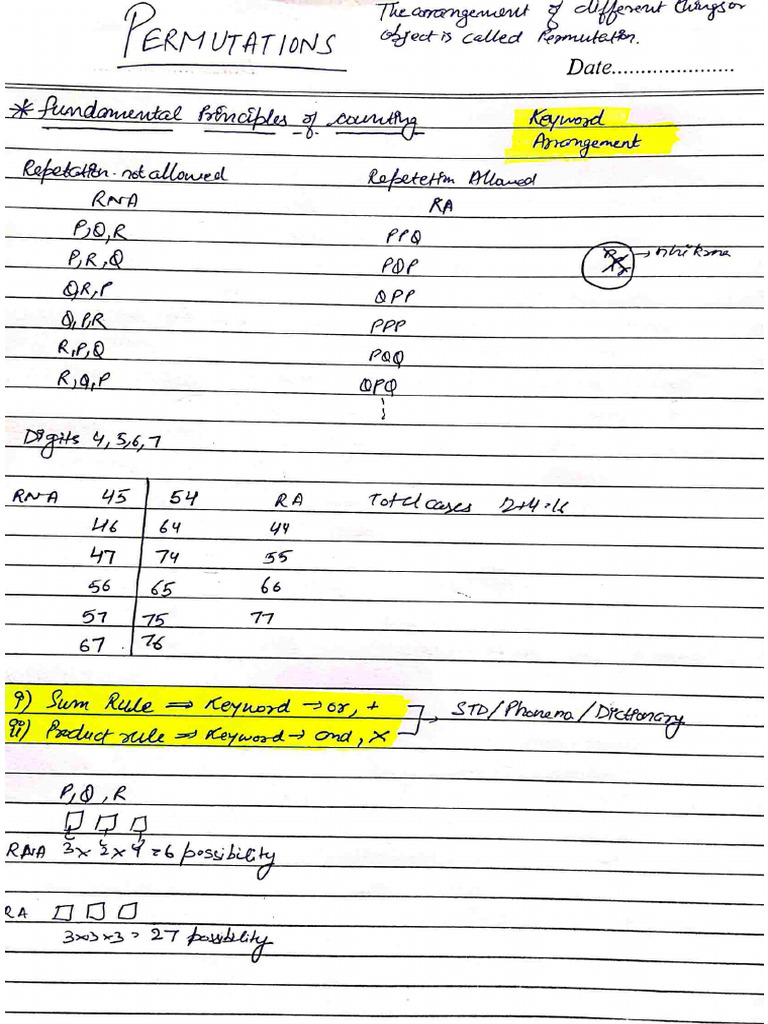 PERMUTATIONS
The arrangement of different things or
object is called Permutation.
Date.....................
* Fundamental Principles of counting
Keyword
Arrangement
Repetation not allowed Repetetion Allowed
RNA RA
P,Q,R PPQ
P,R,Q PQP
Q,R,P QPP
Q,P,R PPP
R,P,Q PQQ
R,Q,P QPQ
Digits 4,5,6,7
RNA 45 54 RA Total cases 12+4=16
46 64 44
47 74 55
56 65 66
57 75 77
67 76
i) Sum Rule ⇒ Keyword → or, +
ii) Product rule ⇒ Keyword → and, ×
→ STD/Phoneno/Dictionary
P,Q,R
RNA 3×2×1=6 possibility
RA
3×3×3=27 possibility